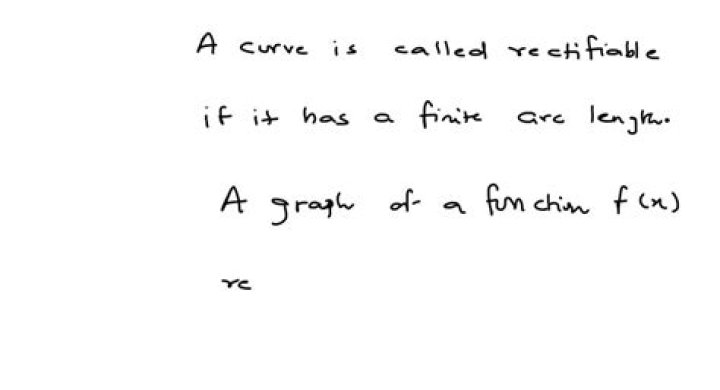 A curve is called rectifiable
if it has a finite arc length.
A graph of a function f(x)
re